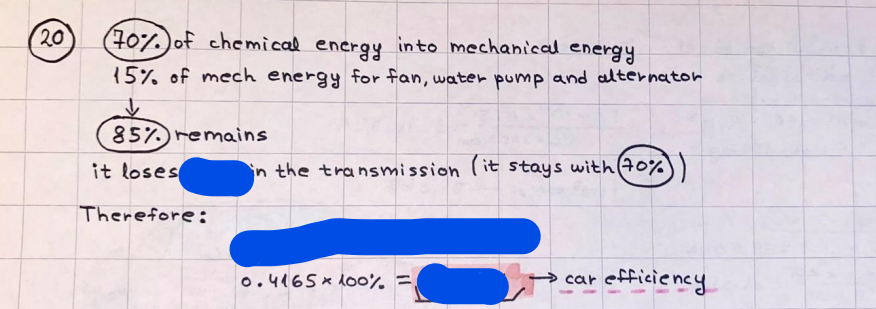 20 70% of chemical energy into mechanical energy
15% of mech energy for fan, water pump and alternator
↓
85% remains
it loses in the transmission (it stays with 70%)
Therefore:
0.4165 × 100% = → car efficiency